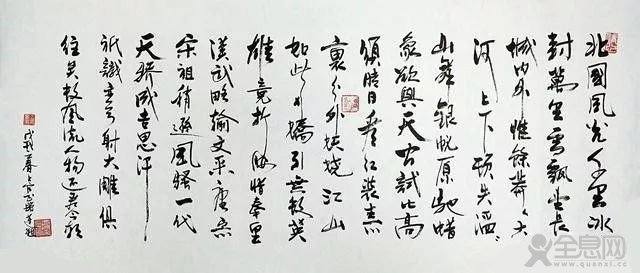 北國風光千里冰
封萬里雪飄望長
城内外惟餘莽々大
河上下頓失滔々
山舞銀蛇原馳蠟
象欲與天公試比高
須晴日看紅裝素
裹分外妖嬈江山
如此多嬌引無數英
雄竟折腰惜秦皇
漢武略輸文采唐宗
宋祖稍遜風騷一代
天驕成吉思汗
祇識彎弓射大雕俱
往矣數風流人物還看今朝
戊戌
全息网